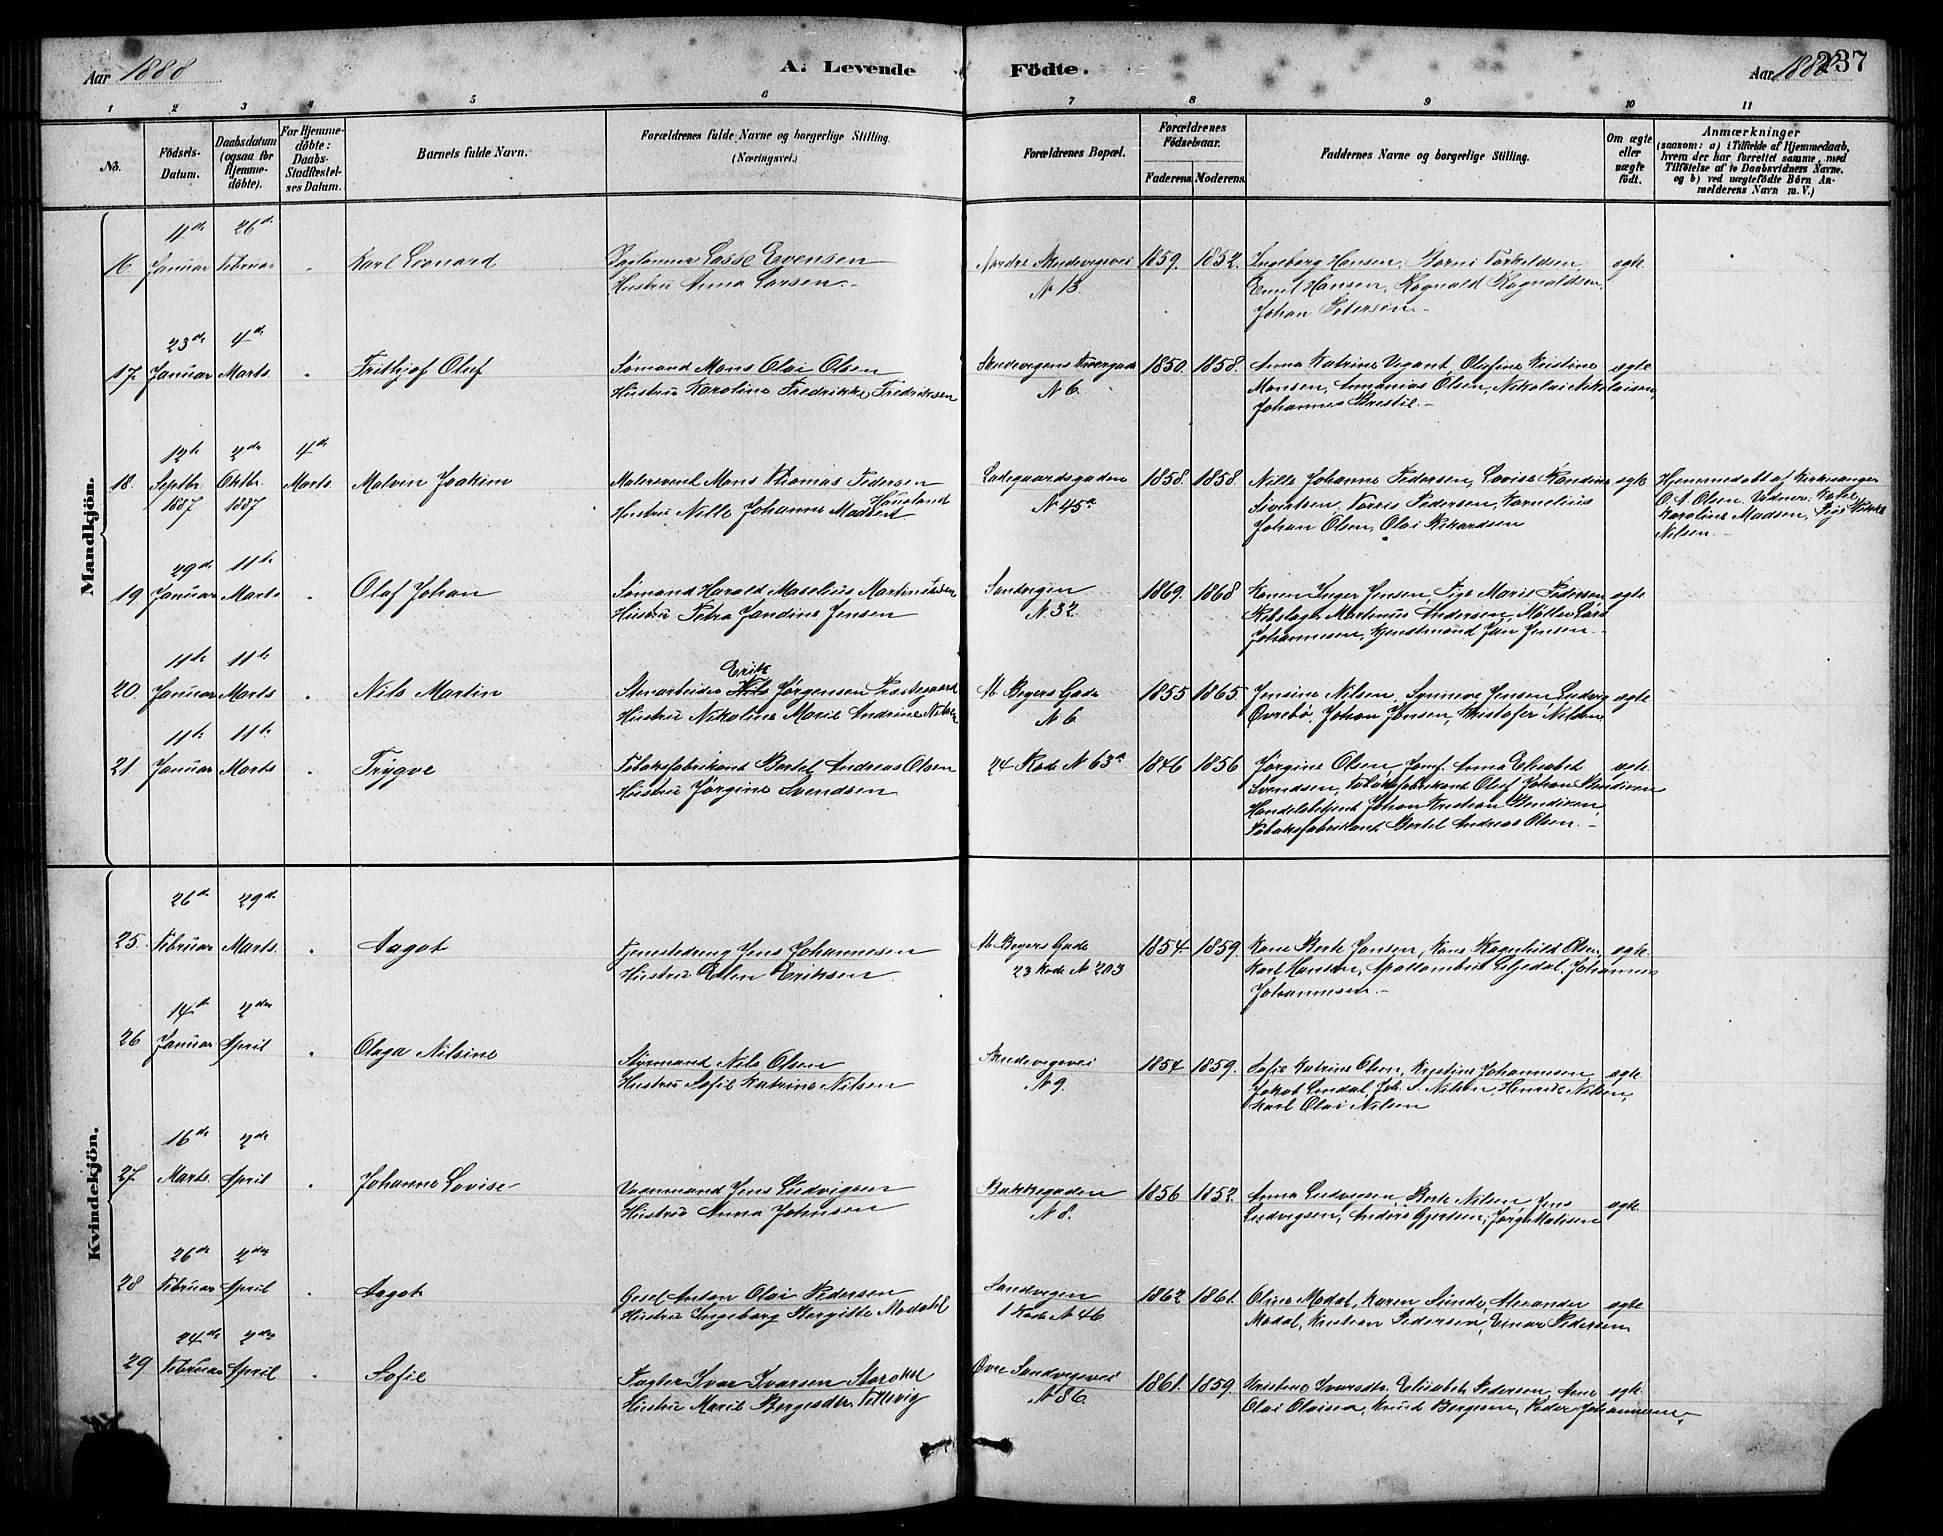 Aar 1888
A. Levende
Födte.
Aar 1888
237
1 2 3 4 5 6 7 8 9 10 11
No.
Födsels-
Datum.
Daabsdatum
(ogsaa for
Hjemme-
döbte).
For Hjemme-
döbte:
Daabs-
Stadfæstel-
ses Datum.
Barnets fulde Navn.
Forældrenes fulde Navne og borgerlige Stilling.
(Næringsvei.)
Forældrenes Bopæl.
Forældrenes
Födselsaar.
Faderens. Moderens.
Faddernes Navne og borgerlige Stilling.
Om ægte
eller
uægte
födt.
Anmærkninger
(saasom: a) i Tilfælde af Hjemmedaab,
hvem der har forrettet samme, med
Tilföielse af to Daabsvidners Navne,
og b) ved uægtefödte Börn An-
melderens Navn m. V.)
Mandkjön.
4de 26de
16 Januar Februar " Karl Leonard
Lasse Evensen
Hustru Anna Larsen
Nordre Skudevigsvei
N 13
1859. 1852.
Ingeborg Hansen, Torkildsen,
Emil Hansen, Ragnald Ragnaldsen,
Johan Petersen
ægte
23de 4de
17. Januar Marts " Frithjof Oluf
Sømand Mons Olai Olsen
Hustru Karoline Fredrikke Fredriksen
Skudevigens Tvergade
N 6.
1850. 1858.
Anna Katrine Vegant, Olufine Kristine
Monsen, Annanias Olsen, Nikolai Nikolaisen,
Johannes Brestil.
ægte
12te 2den 4de
18. Septbr. Oktbr. Marts. Malvin Joakim
1887 1887
Malersvend Mons Thomas Pedersen
Haugland
Hustru Nille Johanne Madsen
Ladegaardsgaden
N 45a
1858. 1858.
Nille Johanne Pedersen, Lovise Randine
Sivertsen, Pedersen, Kornelius
Johan Olsen, Olai Rikardsen
ægte
Hjemmedøbt af Kirkesanger
O. A. Olsen, Vidner: Kone
Karoline Madsen, Pige
Nilsen.
29de 11te
19 Januar Marts " Olaf Johan
Sømand Harald Maselius Martin
Hustru Petra Jandine Jensen
Sandvigen
N 32.
1869. 1868
Konen Inger Jensen, Pige Marie Pedersen
Rebslager Martinus Andersen, Møller Lars
Johannesen, Jan Jensen.
ægte
11te 11te
20 Januar Marts " Nils Martin
Erik
Stenarbeider Nils Jørgensen
Hustru Nikoline Marie Andrine Nilsen
M. Beyers Gade
N 6
1855 1865
Jensine Nilsen, Synneve Jensen, Ludvig
Øvrebø, Johan Jensen, Kristofer Nilsen
ægte
11te 11te
21 Januar Marts " Trygve
Tobaksfabrikant Bertel Andreas Olsen
Hustru Jørgine Svendsen
24 Rode N 63a
1846 1856
Jørgine Olsen, Jomf. Anna Elisabet
Svendsen, Tobaksfabrikant Oluf Johan Bendixen
Handelsbetjent Johan Kristian Bendixen,
Tobaksfabrikant Bertel Andreas Olsen.
ægte
Kvindekjön.
26de 29de
25. Februar Marts. " Aagot
Tjenestedreng Jens Johannesen
Hustru Eriksen
M. Beyers Gade
23 Rode N 203
1854. 1859.
Kone Berte Jansen, Kone Ragnhild Olsen,
Karl Hansen, Liljedal, Johannes
Johannesen.
ægte
14de 2den
26 Januar April " Olaga Nilsine
Styrmand Nils Olsen
Hustru Sofie Katrine Nilsen
Skudevigsvei
N 9.
1854 1859.
Sofie Katrine Olsen, Kirstine Johannesen,
Jakob Lindal, Joh. S. Nilsen, Henrik Nilsen,
Karl Olai Nilsen
ægte
16de 2den
27. Marts. April " Johanne Lovise
Vognmand Jens Ludvigsen
Hustru Anna Johnsen
Bakkegaden
N 8.
1856 1852.
Anna Ludvigsen, Berte Nilsen, Jens
Ludvigsen, Anders Gjertsen, Jørgen
ægte
26de 2den
28 Februar April " Aagot
Gesel Anton Olai Pedersen
Hustru Ingeborg Bergitte Modahl
Sandvigen
1 Rode N 46
1862 1861.
Oline Modal, Karen Sunde, Alexander
Modal, Kristian Pedersen, Einar Pedersen
ægte
24de 2den
29 Februar April " Sofie
Ivar Ivarsen
Hustru Marie Børgesdtr.
Øvre Sandvigsvei
N 86.
1861. 1859.
Kristine Ivarsdtr., Elisabet Pedersen, Arne
Olai Olaisen, Knud Børgesen, Peder Johannesen.
ægte